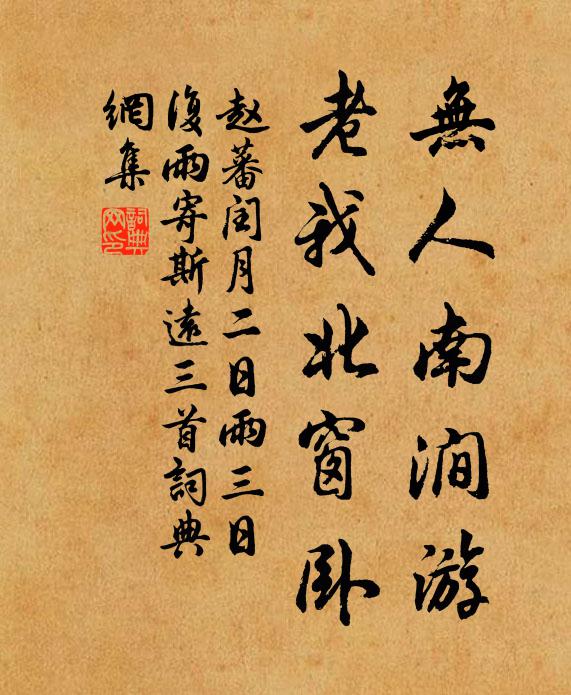 無人南澗游
老我北窗卧
赵蕃闰月二日雨三日
復雨寄斯遠三首詞典
網集
詞典網印